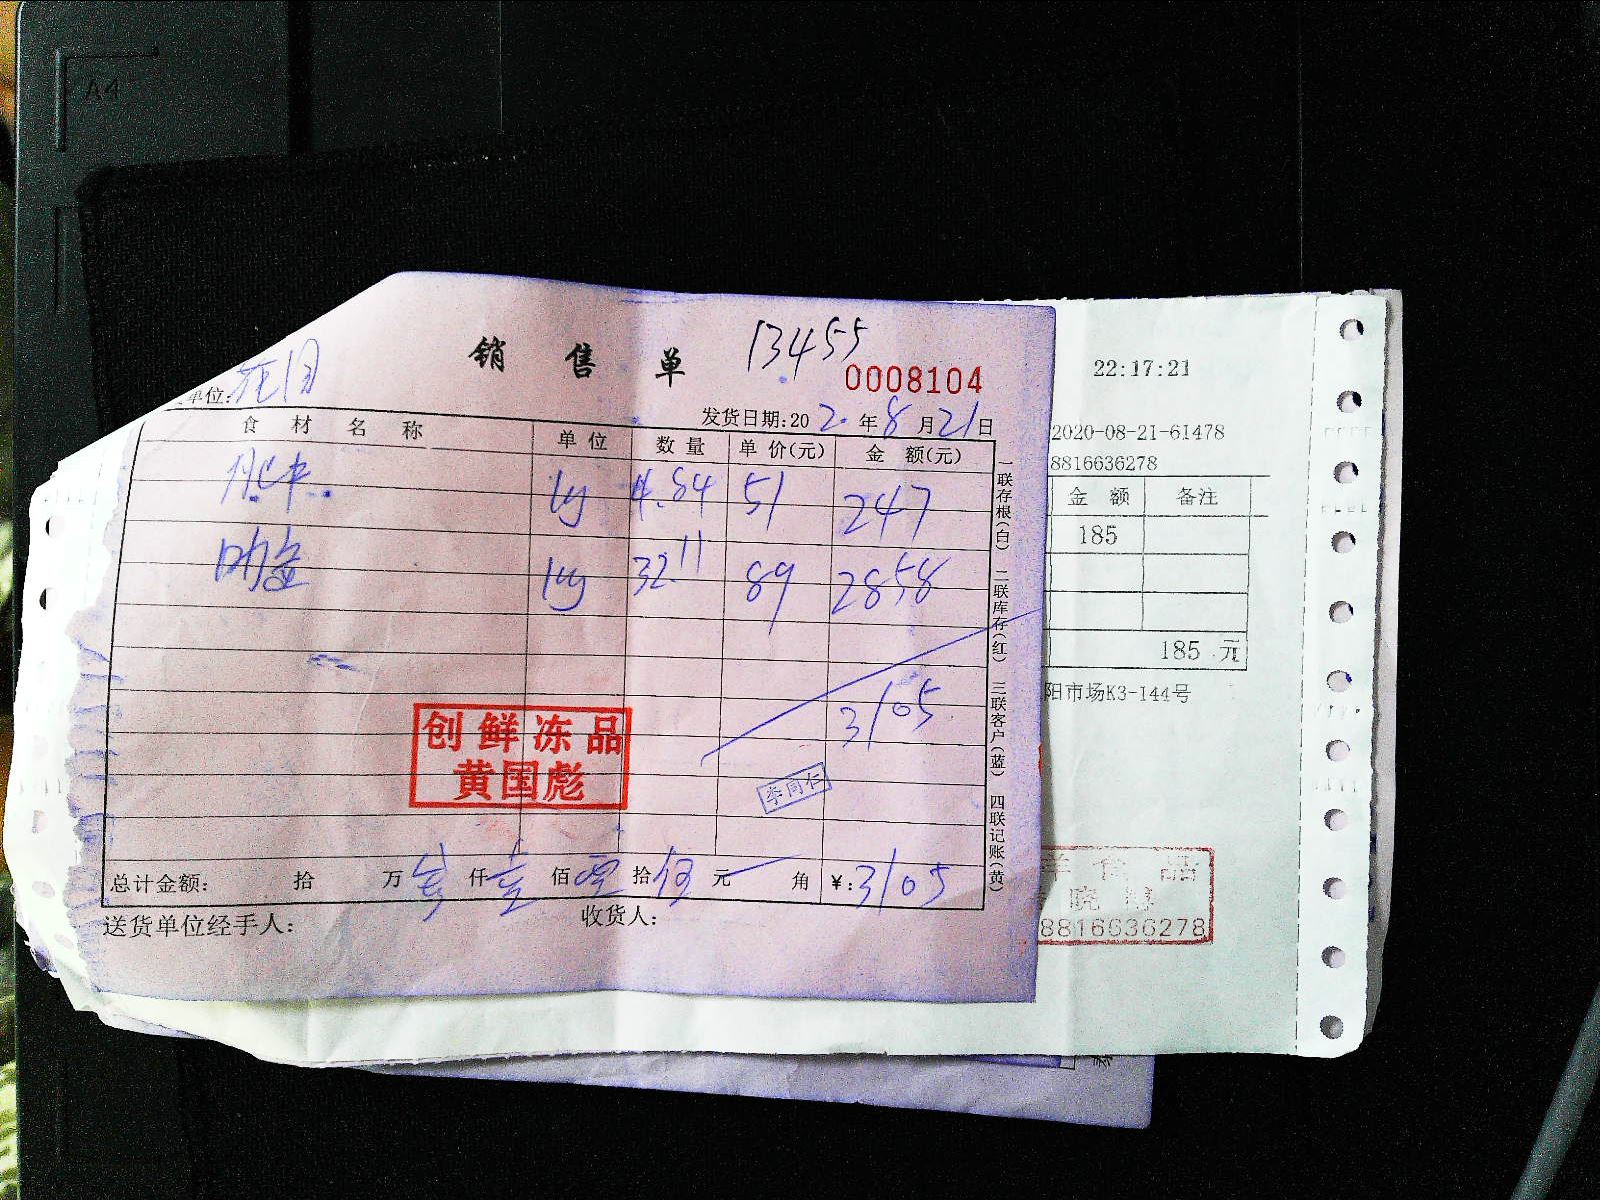 A4
销售单 13455
0008104
单位:
发货日期:202. 年8月21日
食材名称 单位 数量 单价(元) 金额(元)
kg 4.84 51 247
kg 32.11 89 2858
3105
创鲜冻品
黄国彪
总计金额: 拾 万 仟壹佰零拾伍元 角 ¥:3105
送货单位经手人: 收货人:
一联存根(白) 二联库存(红) 三联客户(蓝) 四联记账(黄)
22:17:21
2020-08-21-61478
8816636278
金额 备注
185
185 元
阳市场K3-144号
品
8816636278